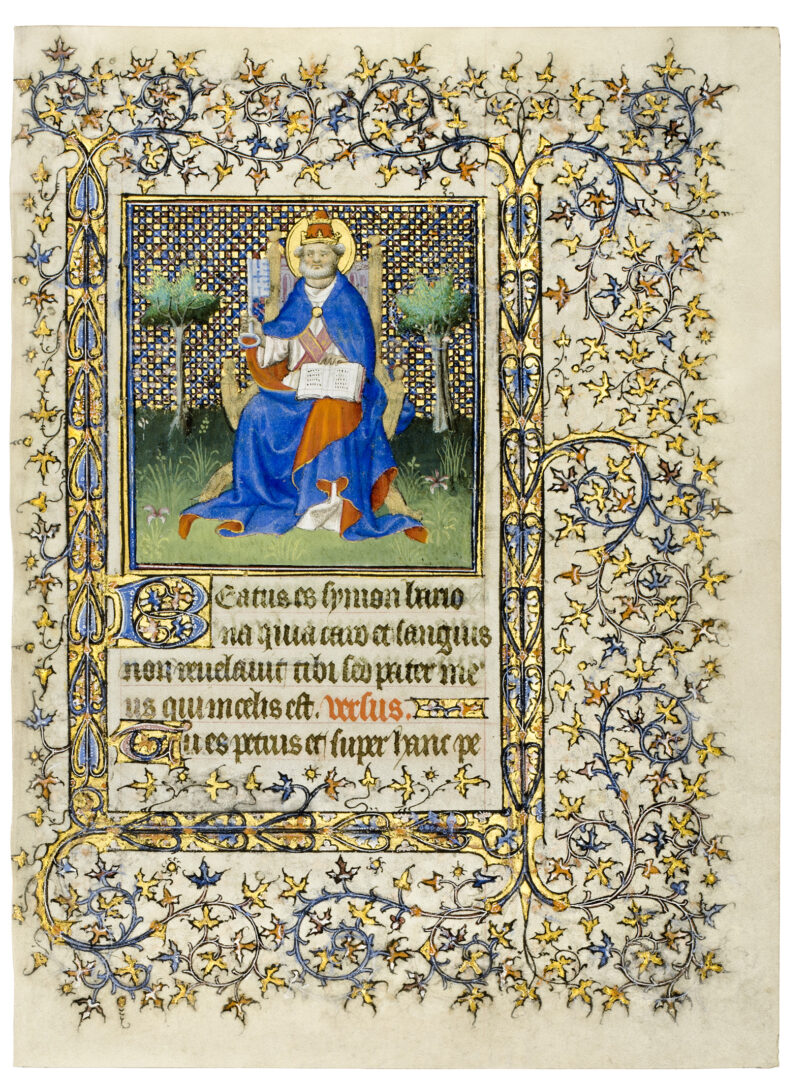 Beatus es symon bario
na quia caro et sanguis
non revelauit tibi sed pater me
us qui in celis est. Versus.
Tu es petrus et super hanc pe